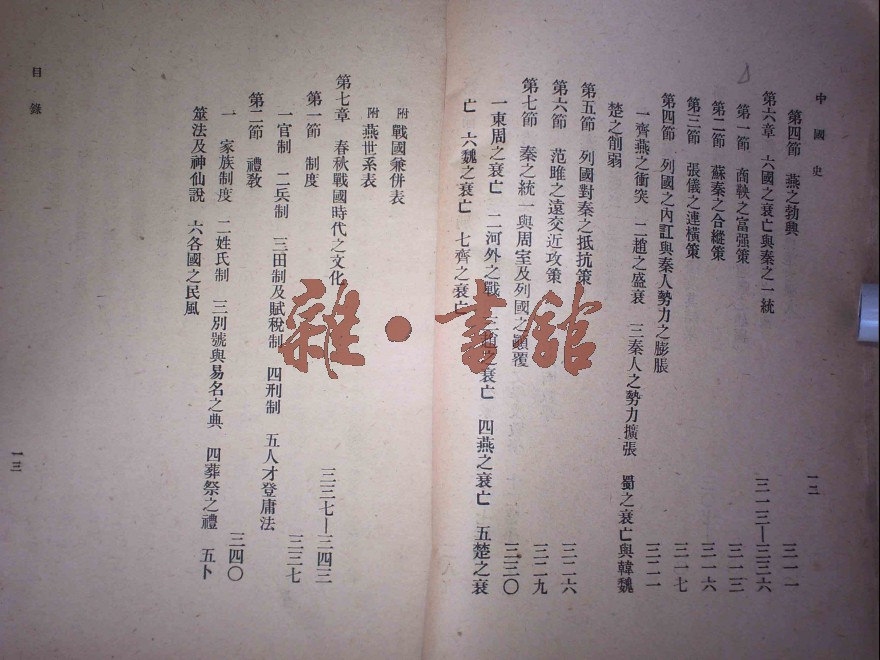 中國史
一二
第四節 燕之勃興 三一一
第六章 六國之衰亡與秦之一統 三一三—三三六
第一節 商鞅之富强策 三一三
第二節 蘇秦之合縱策 三一六
第三節 張儀之連橫策 三一七
第四節 列國之內訌與秦人勢力之膨脹 三二一
一齊燕之衝突 二趙之盛衰 三秦人之勢力擴張 蜀之衰亡與韓魏
楚之削弱
第五節 列國對秦之抵抗策 三二六
第六節 范雎之遠交近攻策 三二九
第七節 秦之統一與周室及列國之顛覆 三三〇
一東周之衰亡 二河外之戰 三趙之衰亡 四燕之衰亡 五楚之衰
亡 六魏之衰亡 七齊之衰亡
附 戰國兼併表
附 燕世系表
第七章 春秋戰國時代之文化 三三七—三四三
第一節 制度 三三七
一官制 二兵制 三田制及賦稅制 四刑制 五人才登庸法
第二節 禮教 三四〇
一 家族制度 二姓氏制 三別號與易名之典 四葬祭之禮 五卜
筮法及神仙說 六各國之民風
目錄
一三
雜·書館